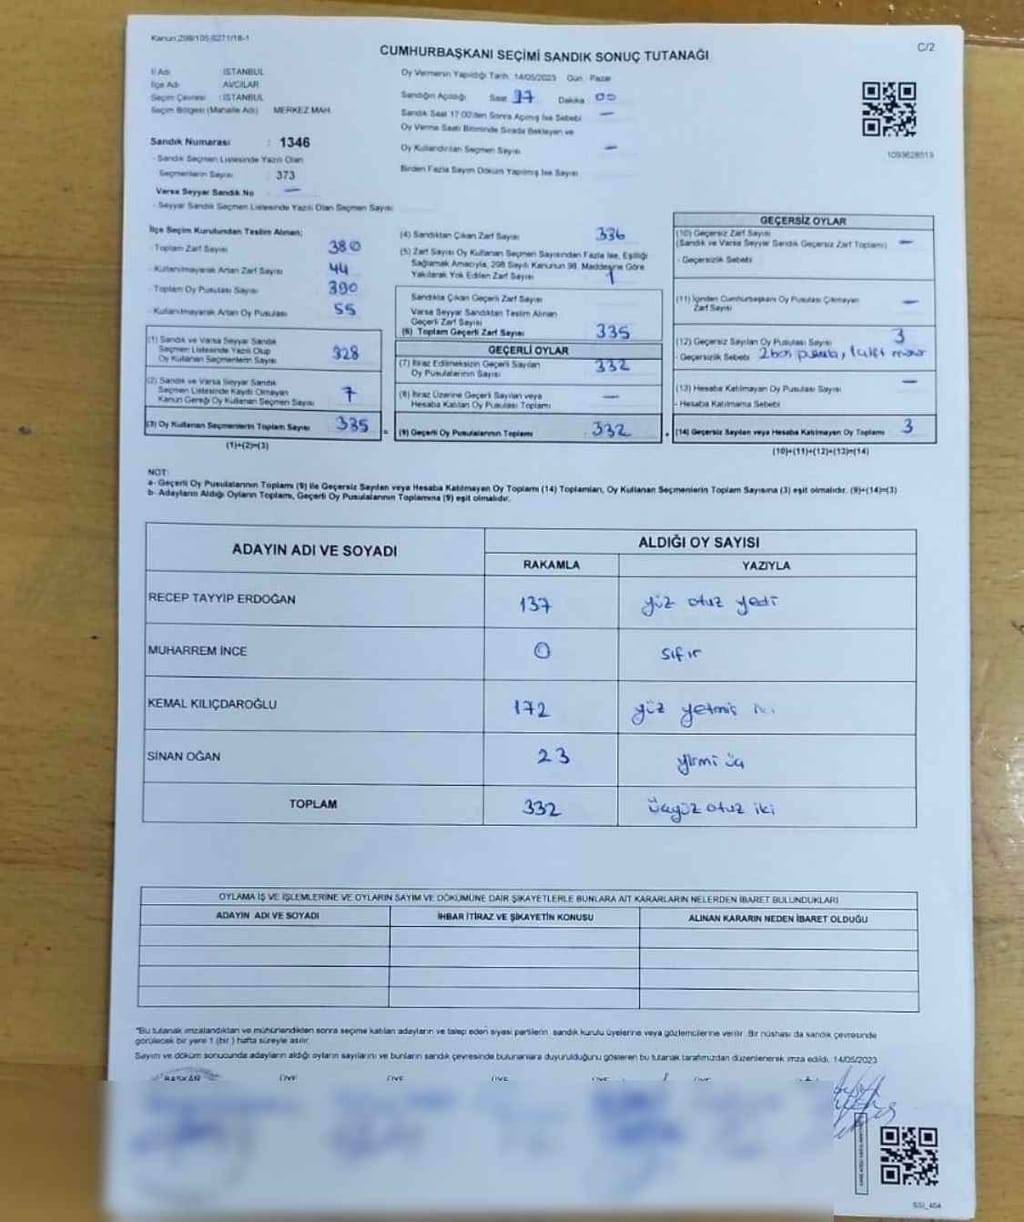 Kanun:298/105,6271/18-1
CUMHURBAŞKANI SEÇİMİ SANDIK SONUÇ TUTANAĞI
C/2
İl Adı : İSTANBUL
İlçe Adı : AVCILAR
Seçim Çevresi : İSTANBUL
Seçim Bölgesi (Mahalle Adı) : MERKEZ MAH.
Sandık Numarası : 1346
- Sandık Seçmen Listesinde Yazılı Olan
Seçmenlerin Sayısı : 373
Varsa Seyyar Sandık No : —
- Seyyar Sandık Seçmen Listesinde Yazılı Olan Seçmen Sayısı
Oy Vermenin Yapıldığı Tarih 14/05/2023 Gün Pazar
Sandığın Açıldığı Saat 17 Dakika 00
Sandık Saat 17.00'den Sonra Açılmış İse Sebebi —
Oy Verme Saati Bitiminde Sırada Bekleyen ve
Oy Kullandırılan Seçmen Sayısı —
Birden Fazla Sayım Döküm Yapılmış İse Sayısı
1093628019
İlçe Seçim Kurulundan Teslim Alınan;
- Toplam Zarf Sayısı 380
- Kullanılmayarak Artan Zarf Sayısı 44
- Toplam Oy Pusulası Sayısı 390
- Kullanılmayarak Artan Oy Pusulası 55
(1) Sandık ve Varsa Seyyar Sandık
Seçmen Listesinde Yazılı Olup
Oy Kullanan Seçmenlerin Sayısı 328
(2) Sandık ve Varsa Seyyar Sandık
Seçmen Listesinde Kayıtlı Olmayan
Kanun Gereği Oy Kullanan Seçmen Sayısı 7
(3) Oy Kullanan Seçmenlerin Toplam Sayısı 335
(1)+(2)=(3)
(4) Sandıktan Çıkan Zarf Sayısı 336
(5) Zarf Sayısı Oy Kullanan Seçmen Sayısından Fazla İse, Eşitliği
Sağlamak Amacıyla, 298 Sayılı Kanunun 98. Maddesine Göre
Yakılarak Yok Edilen Zarf Sayısı 1
Sandıkta Çıkan Geçerli Zarf Sayısı
Varsa Seyyar Sandıktan Teslim Alınan
Geçerli Zarf Sayısı
(6) Toplam Geçerli Zarf Sayısı 335
GEÇERLİ OYLAR
(7) İtiraz Edilmeksizin Geçerli Sayılan
Oy Pusulalarının Sayısı 332
(8) İtiraz Üzerine Geçerli Sayılan veya
Hesaba Katılan Oy Pusulaları Toplamı —
(9) Geçerli Oy Pusulalarının Toplamı 332
GEÇERSİZ OYLAR
(10) Geçersiz Zarf Sayısı
(Sandık ve Varsa Seyyar Sandık Geçersiz Zarf Toplamı) —
- Geçersizlik Sebebi
(11) İçinden Cumhurbaşkanı Oy Pusulası Çıkmayan
Zarf Sayısı —
(12) Geçersiz Sayılan Oy Pusulası Sayısı 3
- Geçersizlik Sebebi 2 boş pusula, 1
(13) Hesaba Katılmayan Oy Pusulası Sayısı —
- Hesaba Katılmama Sebebi
(14) Geçersiz Sayılan veya Hesaba Katılmayan Oy Toplamı 3
(10)+(11)+(12)+(13)=(14)
NOT:
a- Geçerli Oy Pusulalarının Toplamı (9) ile Geçersiz Sayılan veya Hesaba Katılmayan Oy Toplamı (14) Toplamları, Oy Kullanan Seçmenlerin Toplam Sayısına (3) eşit olmalıdır. (9)+(14)=(3)
b- Adayların Aldığı Oyların Toplamı, Geçerli Oy Pusulalarının Toplamına (9) eşit olmalıdır.
ADAYIN ADI VE SOYADI
ALDIĞI OY SAYISI
RAKAMLA YAZIYLA
RECEP TAYYİP ERDOĞAN 137 yüz otuz yedi
MUHARREM İNCE 0 sıfır
KEMAL KILIÇDAROĞLU 172 yüz yetmiş iki
SİNAN OĞAN 23 yirmi üç
TOPLAM 332 üçyüz otuz iki
OYLAMA İŞ VE İŞLEMLERİNE VE OYLARIN SAYIM VE DÖKÜMÜNE DAİR ŞİKAYETLERLE BUNLARA AİT KARARLARIN NELERDEN İBARET BULUNDUKLARI
ADAYIN ADI VE SOYADI İHBAR İTİRAZ VE ŞİKAYETİN KONUSU ALINAN KARARIN NEDEN İBARET OLDUĞU
"Bu tutanak imzalandıktan ve mühürlendikten sonra seçime katılan adayların ve talep eden siyasi partilerin sandık kurulu üyelerine veya gözlemcilerine verilir. Bir nüshası da sandık çevresinde
görülecek bir yere 1 (bir) hafta süreyle asılır.
Sayım ve döküm sonucunda adayların aldığı oyların sayılarını ve bunların sandık çevresinde bulunanlara duyurulduğunu gösteren bu tutanak tarafımızdan düzenlenerek imza edildi. 14/05/2023
BAŞKAN ÜYE ÜYE ÜYE ÜYE ÜYE
SSI_404